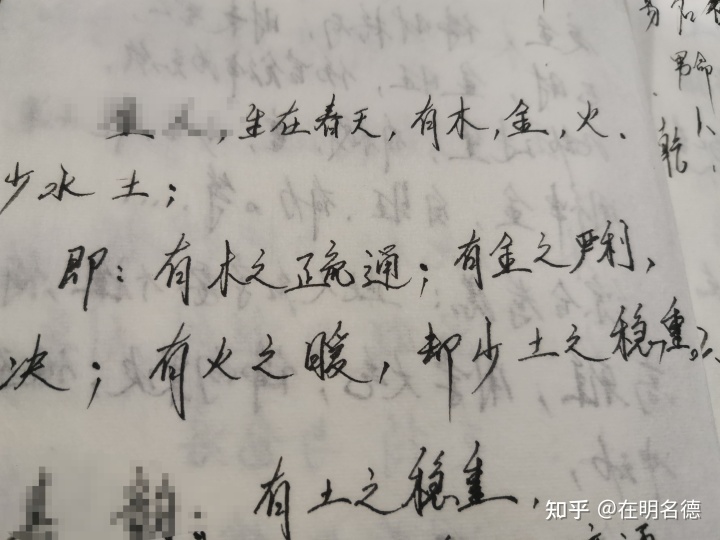 ，生在春天，有木，金，火、
少水土；
即：有木之疏通；有金之严利，
决；有火之暖，却少土之稳重。
：有土之稳重，
男命
乾
知乎 @在明名德